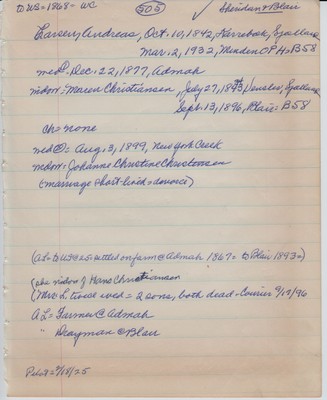 to US=1868= WC
505
✓ Sheridan & Blair
Larsen, Andreas, Oct. 10, 1842, Harrebok, Sjælland
Mar. 2, 1932, Minden OPH=B58
med①. Dec. 22, 1877, Admah
mdow= Maren Christiansen, July 27, 1843, Sjælland
Sept. 13, 1896, Blair= B58
ch= none
med②= Aug. 3, 1899, New York Creek
mdow= Johanne Christine Christensen
(marriage short-lived = divorce)
(AL= to US & settled on farm @ Admah 1867= to Blair 1893=)
widow of Hans Christiansen
(Mrs. L twice wed = 2 sons, both dead = Courier 9/17/96
AL= Farmer @ Admah
" Drayman @ Blair
9/18/25